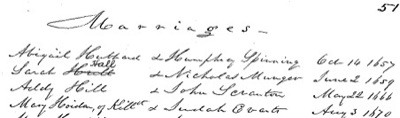 51
Marriages -
Abigail Hubbard & Humphrey Spinning Oct 14 1657
Hall
Sarah & Nicholas Munger June 2 1659
Addy Hill & John Scranton May 22 1666
May of Kill & Judah Evarts Aug 3 1670